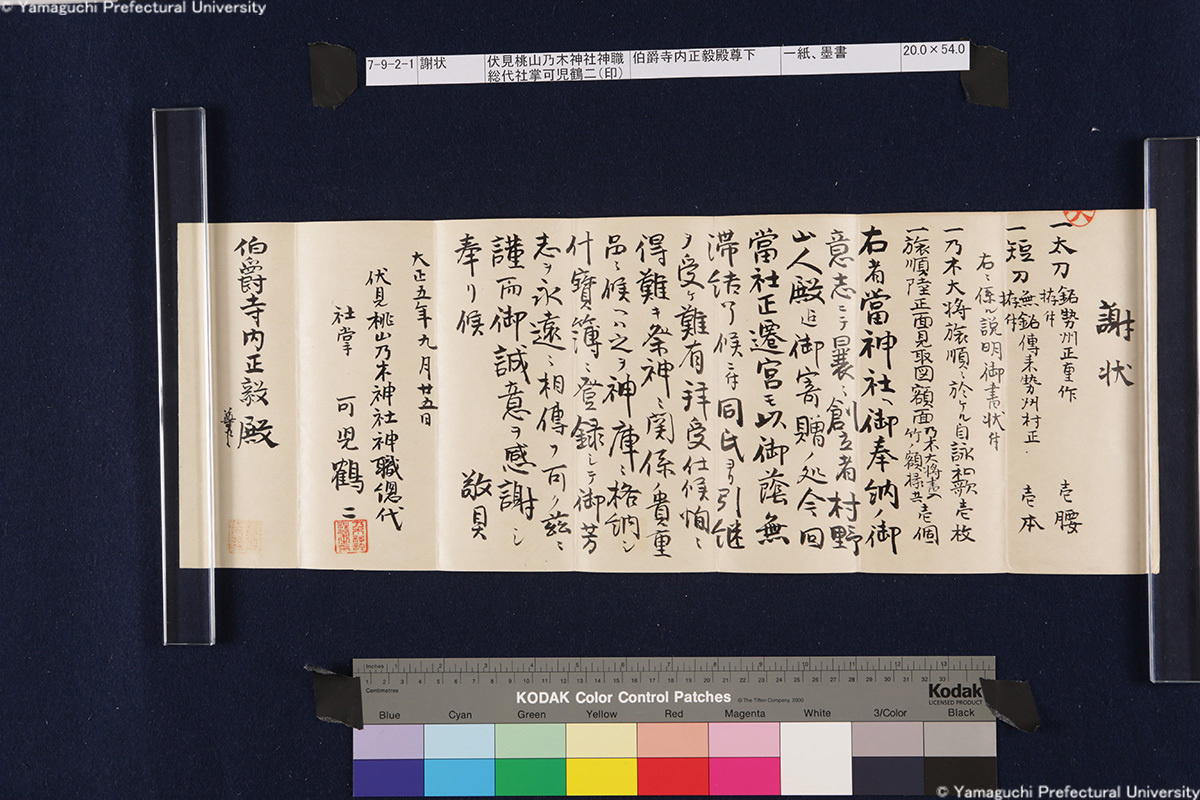 © Yamaguchi Prefectural University
7-9-2-1 謝状 伏見桃山乃木神社神職 伯爵寺内正毅殿尊下 一紙、墨書 20.0×54.0
総代社掌可児鶴二(印)
謝状
一太刀 銘勢州正重作 壱腰
拵付
一短刀 無銘傳来勢州村正 壱本
拵付
右ニ係ル説明御書状付
一乃木大将旅順ニ於ケル自詠和歌壱枚
一旅順陸正面見取図額面 竹ノ額様共 壱個
右者當神社ヘ御奉納ノ御
意志ニテ曩ニ創立者村野
山人殿迄御寄贈ノ処今回
當社正遷宮モ以御蔭無
滞結了候ニ付同氏ヨリ引継
ヲ受ケ難有拝受仕候惟ニ
得難キ祭神ニ関係ノ貴重
品ニ候ヘハ之ヲ神庫ニ格納シ
什寶簿ニ登録シテ御芳
志ヲ永遠ニ相傳フ可ク茲ニ
謹而御誠意ヲ感謝シ
奉リ候 敬具
大正五年九月廿五日
伏見桃山乃木神社神職総代
社掌 可児鶴二
伯爵寺内正毅殿
Inches 1 2 3 4 5 6 7 8 9 10 11 12 13
Centimetres
KODAK Color Control Patches © The Tiffen Company, 2000
Kodak
LICENSED PRODUCT
Blue Cyan Green Yellow Red Magenta White 3/Color Black
© Yamaguchi Prefectural University